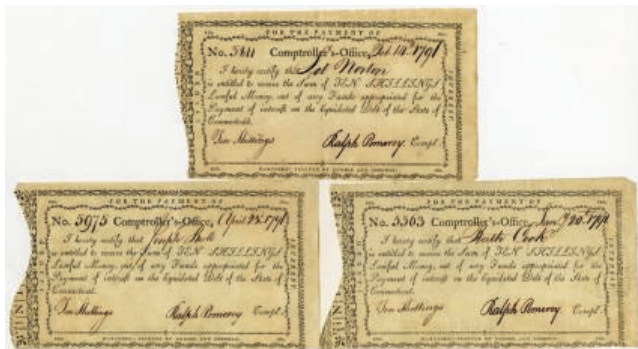 FOR THE PAYMENT OF
No. 5811 Comptroller's-Office, Feb 14th 1791
I hereby certify that Norton
is entitled to receive the Sum of TEN SHILLINGS
Lawful Money, out of any Funds appropriated for the
Payment of interest on the Liquidated Debt of the State of
Connecticut.
Ten Shillings Ralph Pomeroy. Compt.
INTEREST
FOR THE PAYMENT OF
No. 5975 Comptroller's-Office, April 1791
I hereby certify that
is entitled to receive the Sum of TEN SHILLINGS
Lawful Money, out of any Funds appropriated for the
Payment of interest on the Liquidated Debt of the State of
Connecticut.
Ten Shillings Ralph Pomeroy Compt.
INTEREST
FOR THE PAYMENT OF
No. 5363 Comptroller's-Office, 20th 1791
I hereby certify that Cook
is entitled to receive the Sum of TEN SHILLINGS
Lawful Money, out of any Funds appropriated for the
Payment of interest on the Liquidated Debt of the State of
Connecticut.
Ten Shillings Ralph Pomeroy. Compt.
INTEREST